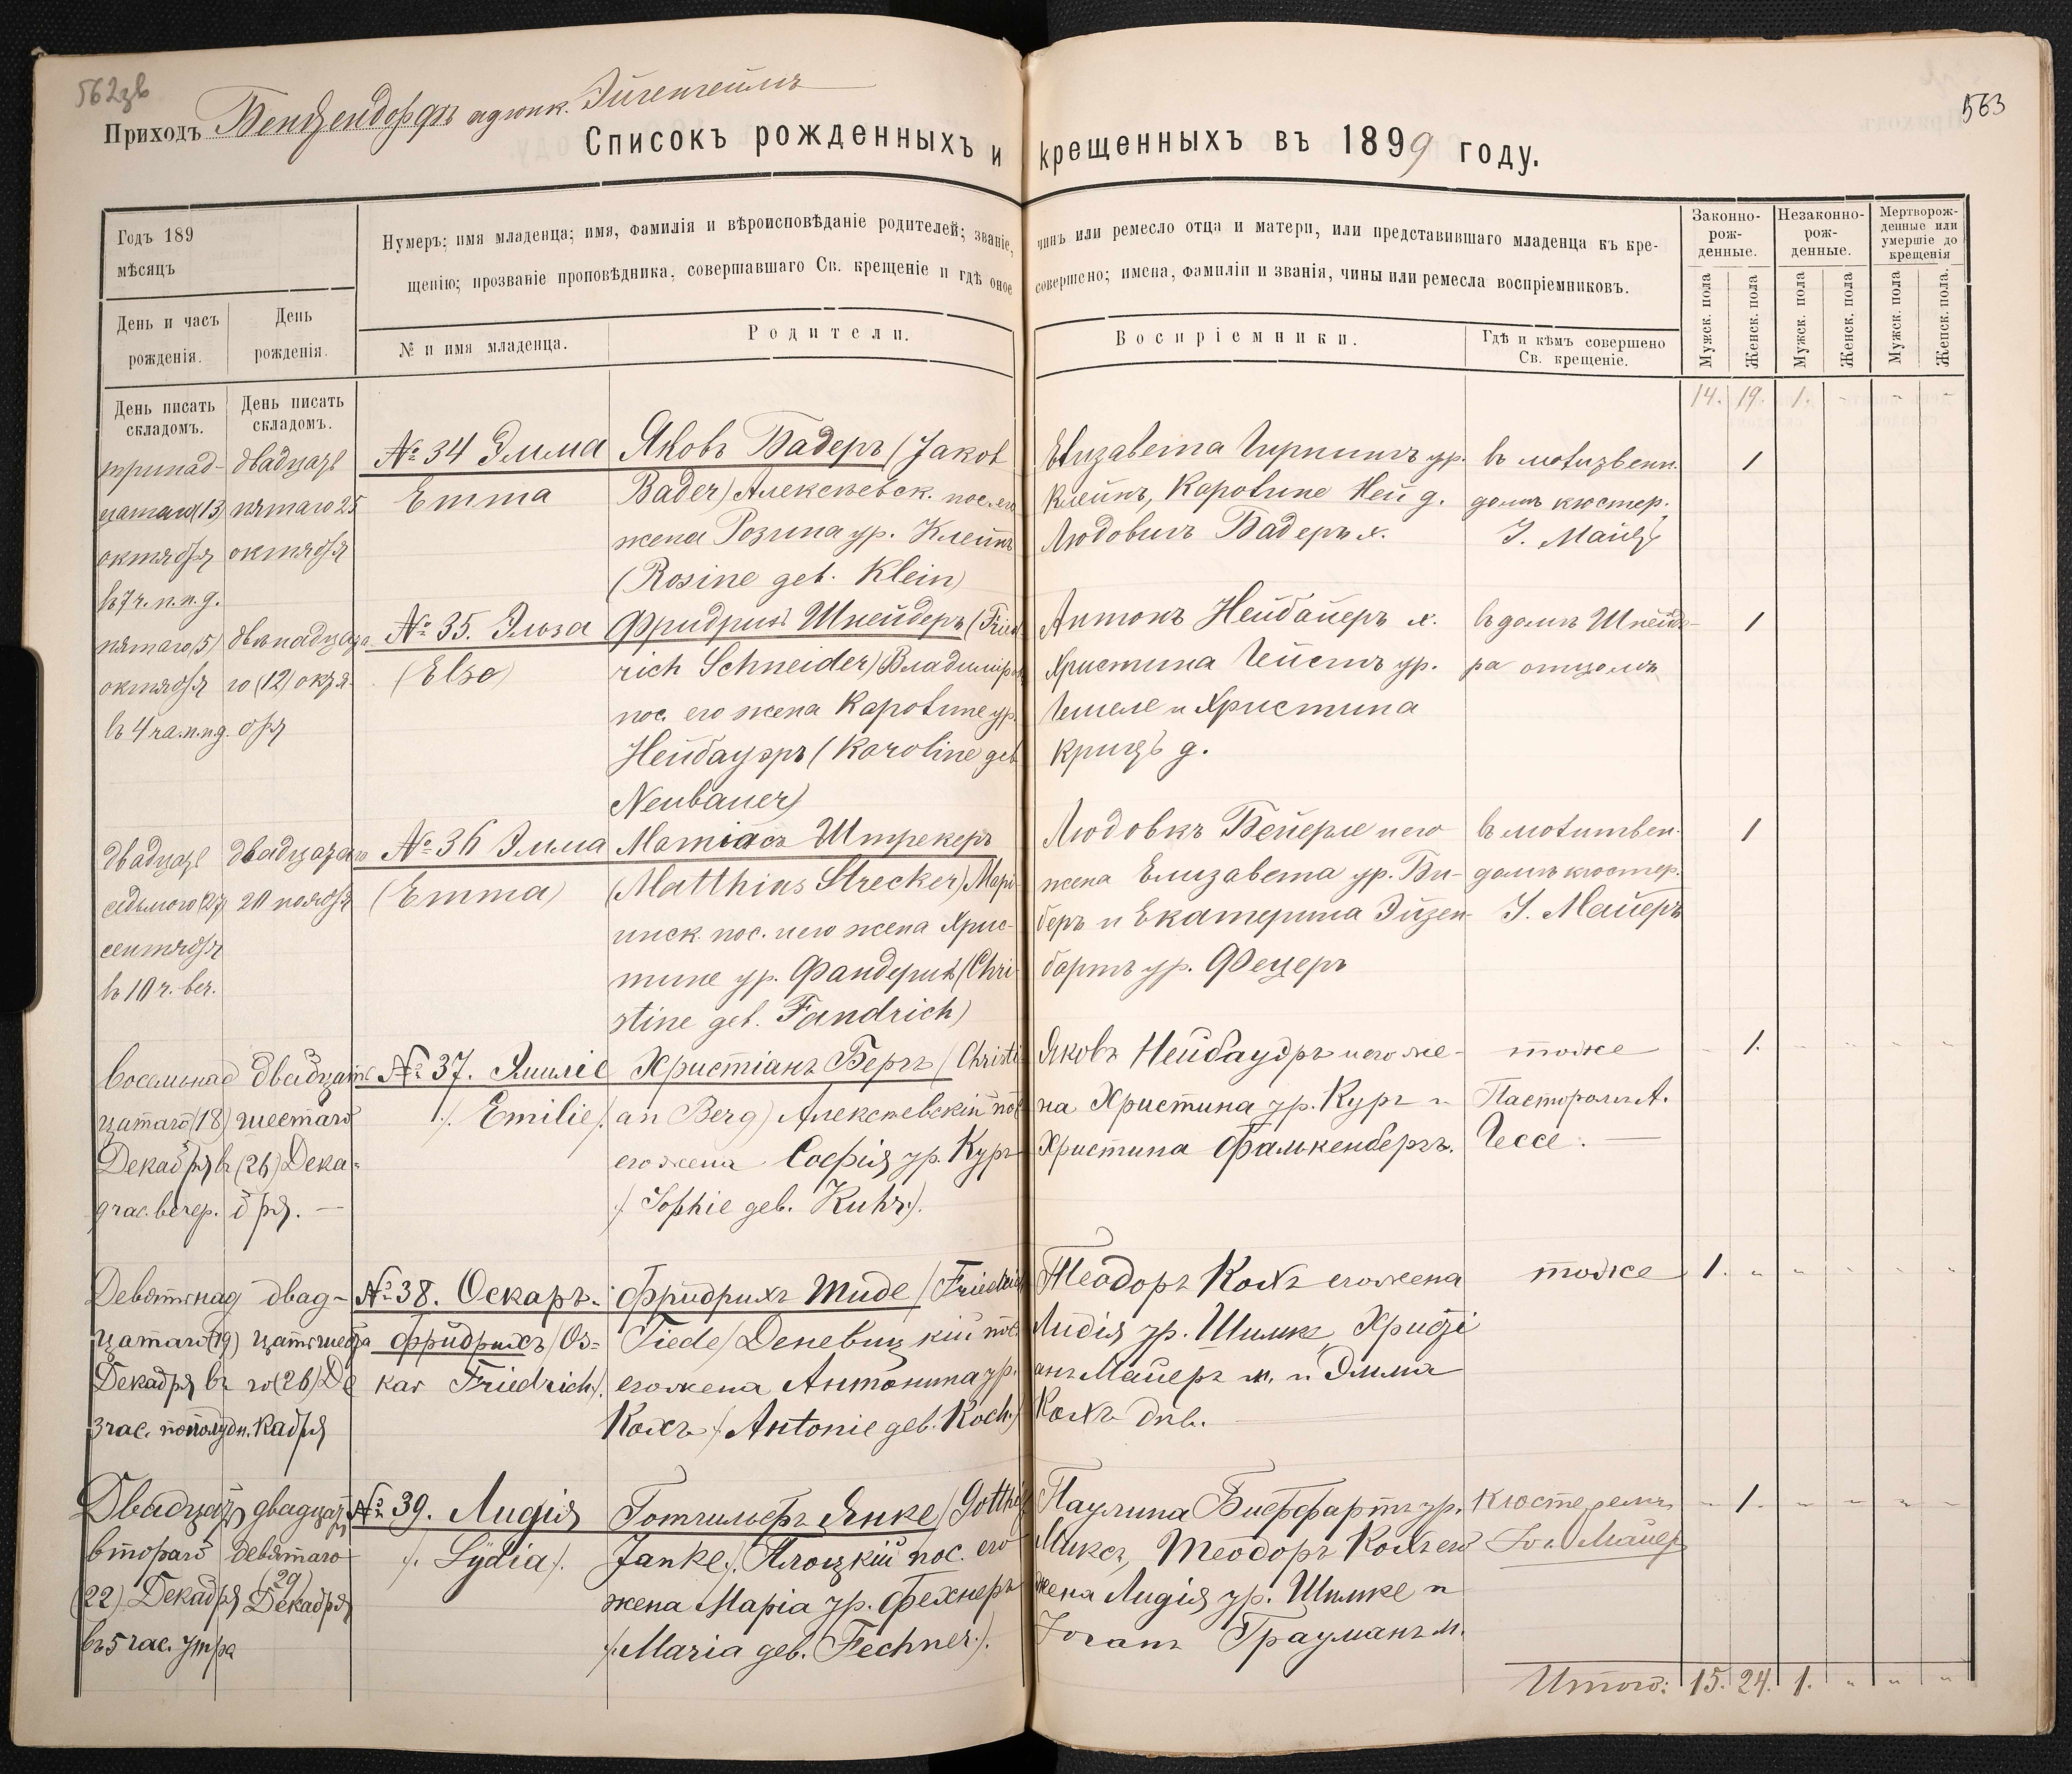 562зв
563
Приходъ Бендзендорфъ адюнк. Эйгенгеймъ
Списокъ рожденныхъ и крещенныхъ въ 1899 году.
Годъ 189
мѣсяцъ
День и часъ рожденія.
День рожденія.
Нумеръ; имя младенца; имя, фамилія и вѣроисповѣданіе родителей; званіе, чинъ или ремесло отца и матери, или представившаго младенца къ кре-
щенію; прозваніе проповѣдника, совершавшаго Св. крещеніе и гдѣ оное совершено; имена, фамиліи и званія, чины или ремесла воспріемниковъ.
№ и имя младенца.
Родители.
Воспріемники.
Гдѣ и кѣмъ совершено
Св. крещеніе.
Законно-
рож-
денные.
Незаконно-
рож-
денные.
Мертворож-
денные или
умершіе до
крещенія
Мужск. пола
Женск. пола
Мужск. пола
Женск. пола
Мужск. пола
Женск. пола.
День писать
складомъ.
День писать
складомъ.
14. 19. 1. - - -
тринад-
цатаго (13)
октября
въ 7 ч. п. п. д.
двадцать
пятаго 25
октября
№ 34 Эмма
Emma
Яковъ Бадеръ (Jakob
Bader) Алексѣевск. пос. его
жена Розина ур. Клейнъ
(Rosine geb. Klein)
Елизавета ур.
Клейнъ, Каролине Ней д.
Людовигъ Бадеръ х.
въ молитвенн.
домѣ кюстер.
I. Майеръ
1
пятаго (5)
октября
въ 4 ча. п. п. д.
двѣнадцата
го (12) октя-
бря
№ 35. Эльза
(Else)
Фридрихъ Шнейдеръ (Fried-
rich Schneider) Владимiров
пос. его жена Каролине ур.
Нейбауэръ (Karoline geb
Neubauer)
Антонъ Нейбауеръ х.
Христина Гейстъ ур.
Гемеле и Христина
Крицъ д.
въ домѣ Шнейде-
ра отцомъ
1
двадцать
седьмого (27)
сентября
въ 10 ч. веч.
двадцатаго
20 ноября
№ 36 Эмма
(Emma)
Матіасъ Штрекеръ
(Matthias Strecker) Марі-
инск. пос. и его жена Хрис-
тине ур. Фандерихъ (Chri-
stine geb. Fandrich)
Людовкъ Бейерле и его
жена Елизавета ур. Би-
беръ и Екатерина Эйзен-
бартъ ур. Фецеръ
въ молитвен.
домѣ кюстер.
I. Майеръ
1
восемьнад
цатаго (18)
Декабря въ
9 час. вечер.
двадцать
шестаго
(26) Дека-
бря. —
№ 37. Эмиліе
/. Emilie /.
Христіанъ Бергъ (Christi-
an Berg) Алексѣевскій пос
его жена Софія ур. Кург
/. Sophie geb. Kuhr /.
Яковъ Нейбауэръ и его же-
на Христина ур. Кург и
Христина Фалькенбергъ.
тоже
Пасторомъ А.
Гессе. —
1.
Девятнад
цатаго (19)
Декабря въ
3 час. пополудн.
двад-
цать шеста
го (26) Де
кабря
№ 38. Оскаръ-
Фридрихъ /Os-
kar Friedrich/.
Фридрихъ Тиде /Friedrich
Tiede/ Деневицкій пос.
его жена Антонина ур.
Кохъ /. Antonie geb. Koch /.
Теодоръ Кохъ его жена
Лидія ур. Шимке, Христі
анъ Майеръ м. и Эмма
Кохъ двв.
тоже
1.
Двадцать
втораго
(22) Декабря
въ 5 час. утра
двадцать
девятаго
(29)
Декабря
№ 39. Лидія
/. Lydia /.
Готгильфъ Янке /Gotthilf
Janke /. Плоцкій пос. его
жена Марія ур. Фехнеръ
/. Maria geb. Fechner /.
Паулина Биффартъ ур.
Миксъ, Теодоръ Кохъ его
жена Лидія ур. Шимке и
Іоганъ Трауманъ м.
Кюстеремъ
Іог. Майер
1.
Итого: 15. 24. 1. " " "